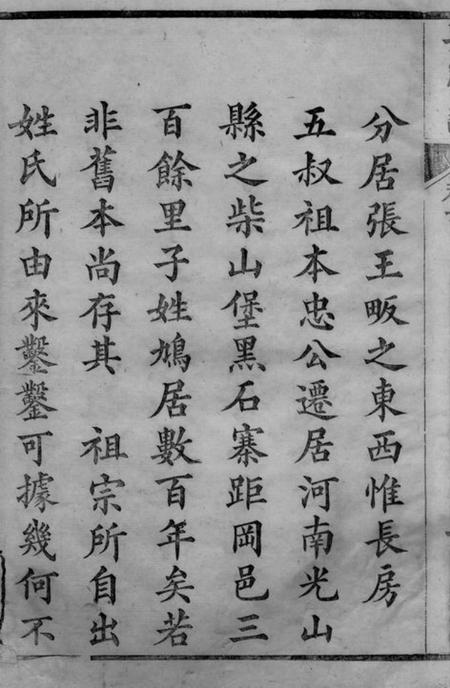 分居張王畈之東西惟長房
五叔祖本忠公遷居河南光山
縣之柴山堡黑石寨距岡邑三
百餘里子姓鳩居數百年矣若
非舊本尚存其　祖宗所自出
姓氏所由來鑿鑿可據幾何不